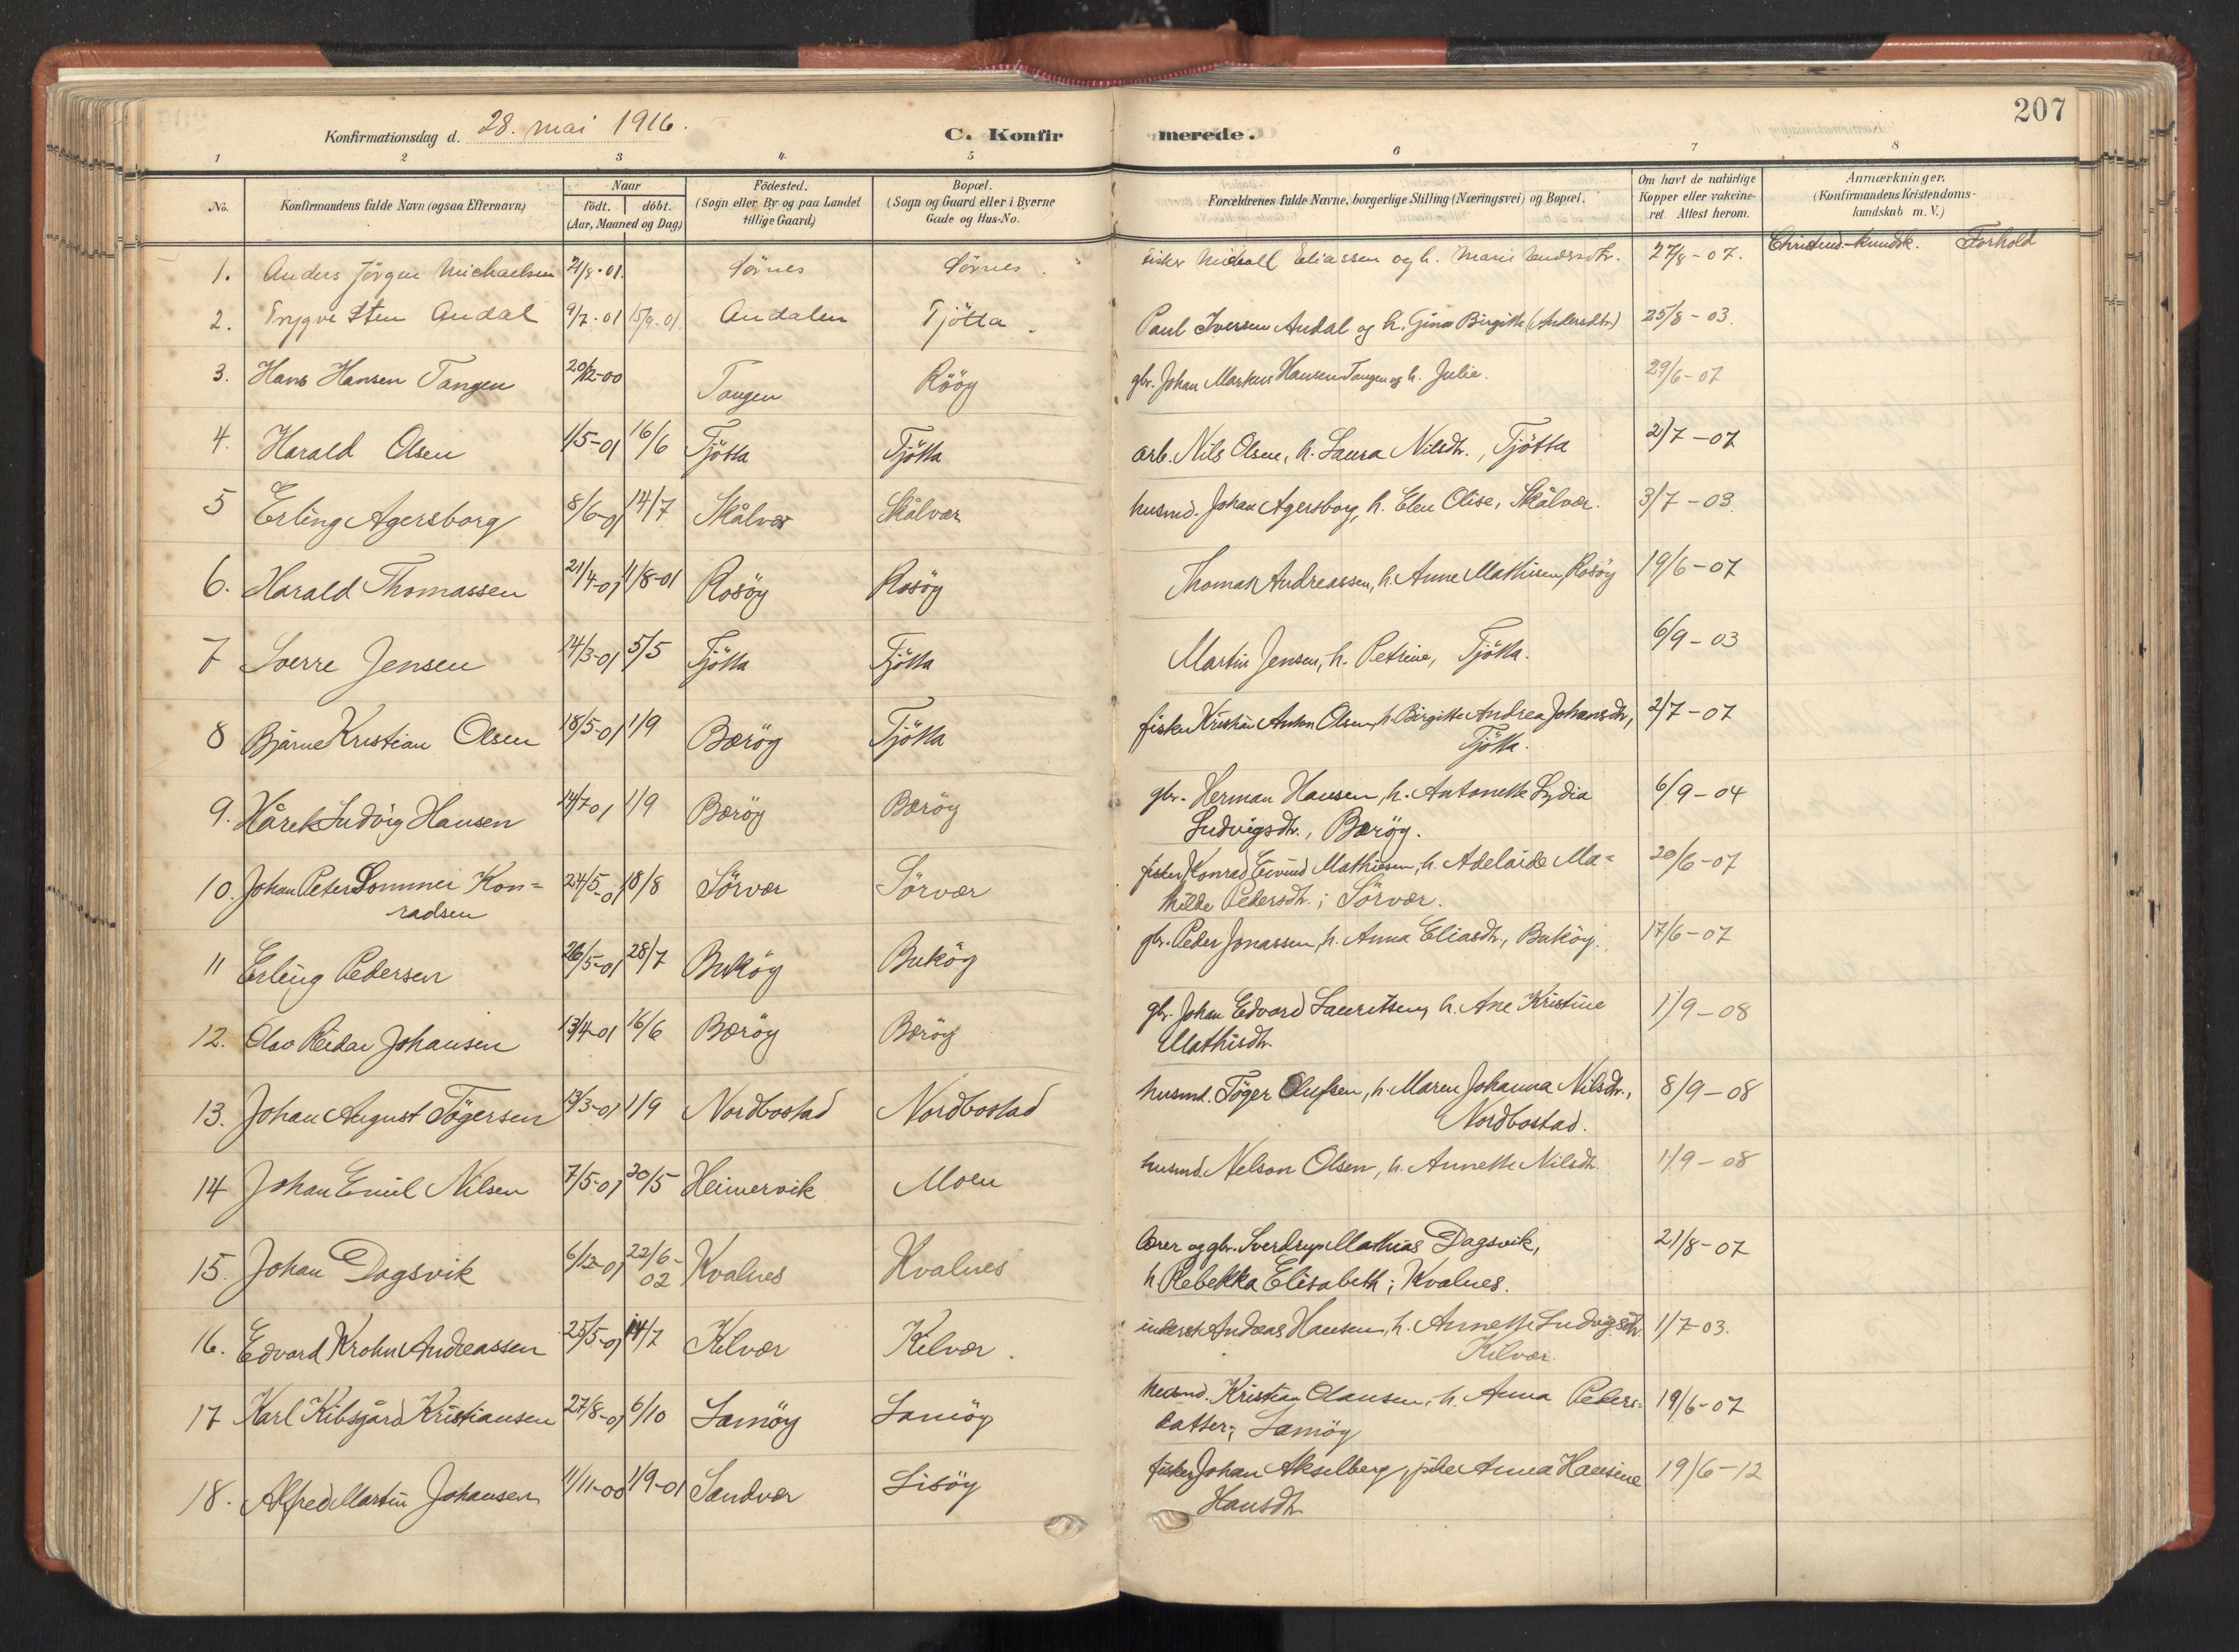 207
Konfirmationsdag d. 28. mai 1916.
C. Konfirmerede.
1 2 3 4 5 6 7 8
No.
Konfirmandens fulde Navn (ogsaa Efternavn)
Naar
födt. döbt.
(Aar, Maaned og Dag)
Födested.
(Sogn eller By og paa Landet
tillige Gaard)
Bopæl.
(Sogn og Gaard eller i Byerne
Gade og Hus-No.
Forældrenes fulde Navne, borgerlige Stilling (Næringsvei) og Bopæl.
Om havt de natürlige
Kopper eller vakcine-
ret. Attest herom.
Anmærkninger.
(Konfirmandens Kristendoms-
kundskab m. V.)
Christend.-kundsk. Forhold
1. Anders Jörgen Michaelsen 21/8-01. Sörnes Sörnes. fisker Michall Eliassen og h. Marie Andersdtr. 27/8-07.
2. Trygve Sten Andal 9/7-01 15/9-01 Andalen Tjötta. Paul Iversen Andal og h. Gina Birgitte (Andersdtr) 25/8-03.
3. Hans Hansen Tangen 20/12-00 Tangen Röög gbr. Johan Markus Hansen Tangen og h. Julie. 29/6-07
4. Harald Olsen 1/5-01 16/6 Tjötta Tjötta arb. Nils Olsen, h. Laura Nilsdtr., Tjötta 2/7-07
5 Erling Agersborg 8/6-01 14/7 Skålvær Skålvær husmd. Johan Agersborg, h. Elen Olise, Skålvær. 3/7-03.
6. Harald Thomassen 21/4-01 11/8-01 Rosöy Rosöy Thomas Andreassen, h. Anne Mathisen, Rosöy 19/6-07
7 Sverre Jensen 24/3-01 5/5 Tjötta Tjötta Martin Jensen, h. Petrine, Tjötta. 6/9-03
8 Bjarne Kristian Olsen 18/5-01 1/9 Bæröy Tjötta fisker Kristian Anton Olsen, h. Birgitte Andrea Johansdtr, 2/7-07
Tjötta.
9. Hårek Ludvig Hansen 14/7-01 1/9 Bæröy Bæröy gbr. Herman Hansen, h. Antonette Lydia 6/9-04
Ludvigsdtr., Bæröy.
10. Johan Peter Sommer Kon- 24/5-01 18/8 Sörvær Sörvær fisker Konrad Eivind Mathisen, h. Adelaide Ma- 20/6-07
radsen
thilde Pedersdtr.; Sörvær.
11 Erling Pedersen 26/5-01 28/7 Buköy Buköy gbr. Peder Jonassen, h. Anna Eliasdtr., Buköy. 17/6-07
12. Olav Reidar Johansen 13/4-01 16/6 Bæröy Bæröy gbr. Johan Edvard Lauritsen, h. Ane Kristine 1/9-08
Mathisdtr.
13. Johan August Tögersen 13/3-01 1/9 Nordbostad Nordbostad husmd. Töger Olufsen, h. Maren Johanna Nilsdtr., 8/9-08
Nordbostad.
14 Johan Emil Nilsen 7/5-01 20/5 Heimervik Moen husmd. Nelson Olsen, h. Annette Nilsdtr. 1/9-08
15. Johan Dagsvik 6/12-01 22/6-02 Kvalnes Kvalnes lærer og gbr. Sverdrup Mathias Dagsvik, 21/8-07
h. Rebekka Elisabeth; Kvalnes.
16. Edvard Krohn Andreassen 25/5-01 14/7 Kilvær Kilvær. inderst Andreas Hansen, h. Annette Ludvigsdtr. 1/7-03.
Kilvær.
17 Karl Kibsgård Kristiansen 27/8-01 6/10 Lamöy Lamöy husmd. Kristian Olausen, h. Anna Peders- 19/6-07
datter; Lamöy
18. Alfred Martin Johansen 11/11-00 1/9-01 Sandvær Lisöy fisker Johan Akselberg, pike Anna Hansine 19/6-12
Hansdtr